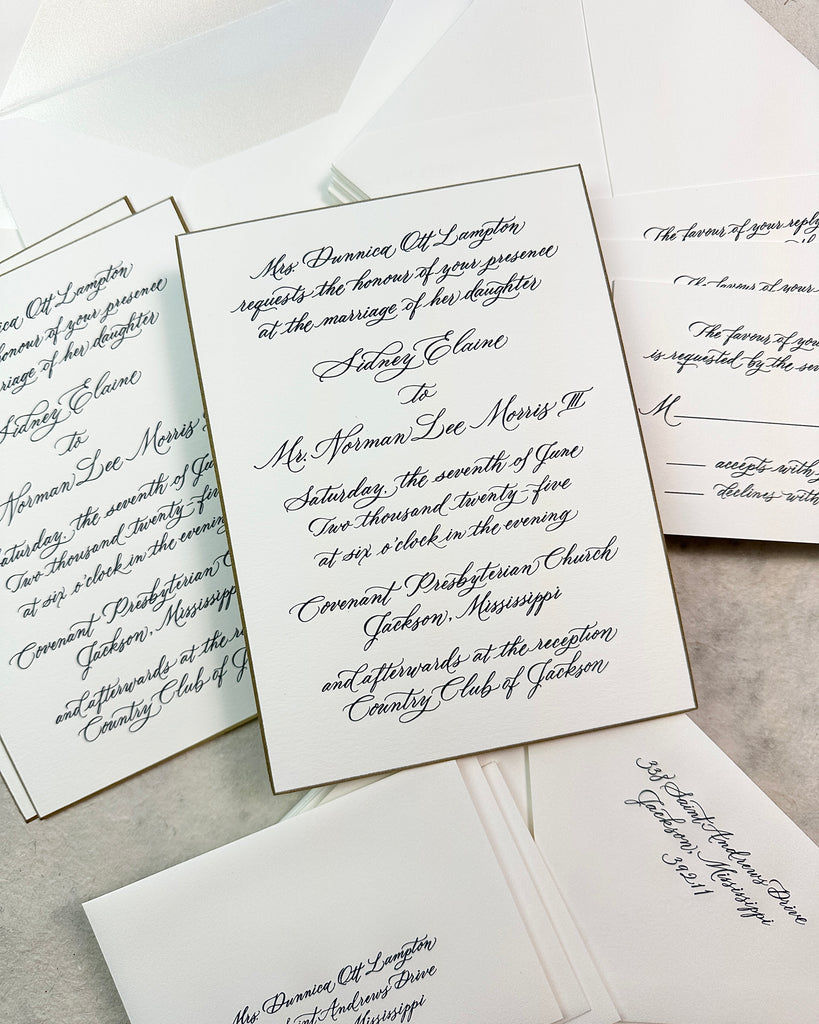 Mrs. Dunnica Ott Lampton
requests the honour of your presence
at the marriage of her daughter
Sidney Elaine
to
Mr. Norman Lee Morris III
Saturday, the seventh of June
Two thousand twenty-five
at six o'clock in the evening
Covenant Presbyterian Church
Jackson, Mississippi
and afterwards at the reception
Country Club of Jackson
Ott Lampton
honour of your presence
marriage of her daughter
Sidney Elaine
to
Norman Lee Morris
Saturday, the seventh of
Two thousand twenty-five
at six o'clock in the evening
Covenant Presbyterian
Jackson, Mississippi
and afterwards at the
Country Club of
The favour of your reply
The favour of your
The favour of
is requested by the
M
accepts with
declines with
338 Saint Andrews Drive
Jackson, Mississippi
39211
Mrs. Dunnica Ott Lampton
Saint Andrews Drive
Mississippi